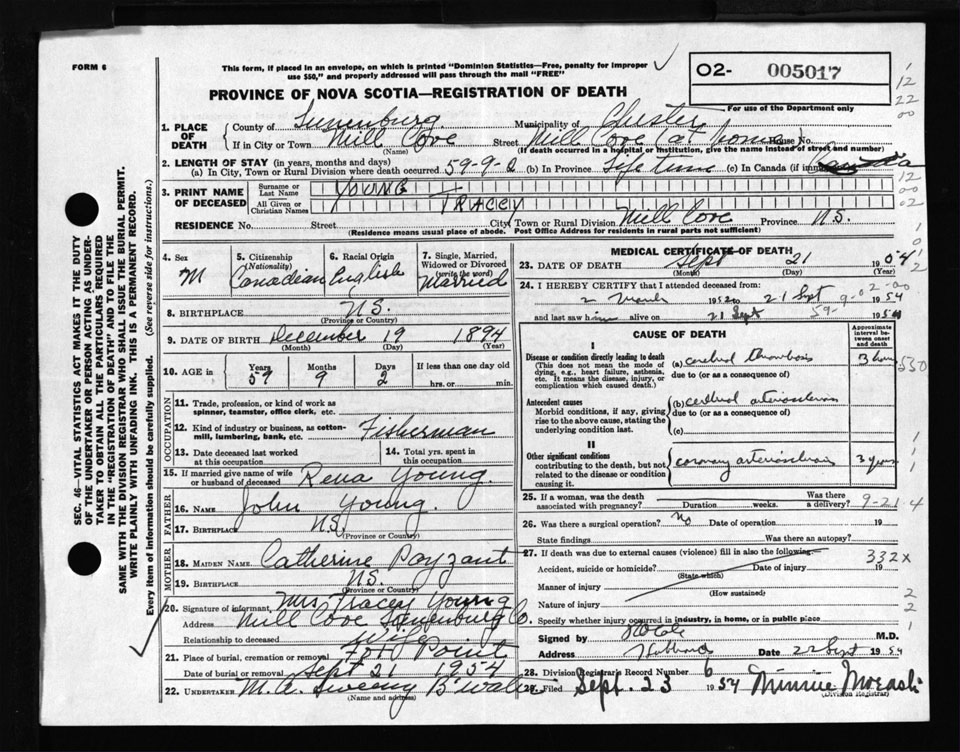 FORM 6
This form, if placed in an envelope, on which is printed "Dominion Statistics—Free, penalty for improper
use $50," and properly addressed will pass through the mail "FREE"
O2- 005017
For use of the Department only
PROVINCE OF NOVA SCOTIA—REGISTRATION OF DEATH
1. PLACE OF DEATH County of Lunenburg Municipality of Chester
If in City or Town Mill Cove (Name) Street Mill Cove (at home) House No.
(If death occurred in a hospital or institution, give the name instead of street and number)
2. LENGTH OF STAY (in years, months and days)
(a) In City, Town or Rural Division where death occurred 59-9-2 (b) In Province Life time (c) In Canada (if
3. PRINT NAME OF DECEASED Surname or Last Name YOUNG
All Given or Christian Names TRACEY
RESIDENCE No. Street City, Town or Rural Division Mill Cove Province N.S.
(Residence means usual place of abode. Post Office Address for residents in rural parts not sufficient)
4. Sex M
5. Citizenship (Nationality) Canadian
6. Racial Origin English
7. Single, Married, Widowed or Divorced (write the word) Married
8. BIRTHPLACE N.S. (Province or Country)
9. DATE OF BIRTH December 19 1894
(Month) (Day) (Year)
10. AGE in Years 59 Months 9 Days 2 If less than one day old hrs. or min.
OCCUPATION
11. Trade, profession, or kind of work as spinner, teamster, office clerk, etc.
12. Kind of industry or business, as cotton-mill, lumbering, bank, etc. Fisherman
13. Date deceased last worked at this occupation
14. Total yrs. spent in this occupation
15. If married give name of wife or husband of deceased Rena Young.
FATHER
16. NAME John Young.
17. BIRTHPLACE N.S. (Province or Country)
MOTHER
18. MAIDEN NAME Catherine Poyzant
19. BIRTHPLACE N.S. (Province or Country)
20. Signature of informant Mrs Tracey Young
Address Mill Cove Lunenburg Co.
Relationship to deceased wife
21. Place of burial, cremation or removal Fox Point
Date of burial or removal Sept 1954
22. UNDERTAKER M.A. Sweeny B'water
(Name and address)
MEDICAL CERTIFICATE OF DEATH
23. DATE OF DEATH Sept 21 1954
(Month) (Day) (Year)
24. I HEREBY CERTIFY that I attended deceased from:
2 March 1952 to 21 Sept 1954
and last saw him alive on 21 Sept 195
CAUSE OF DEATH
Approximate interval between onset and death
I
Disease or condition directly leading to death
(This does not mean the mode of dying, e.g., heart failure, asthenia, etc. It means the disease, injury, or complication which caused death.)
(a) cerebral thrombosis 3 hours
due to (or as a consequence of)
Antecedent causes
Morbid conditions, if any, giving rise to the above cause, stating the underlying condition last.
(b) cerebral arteriosclerosis
due to (or as a consequence of)
(c)
II
Other significant conditions
contributing to the death, but not related to the disease or condition causing it.
coronary arteriosclerosis 3 years
25. If a woman, was the death associated with pregnancy? Duration weeks. Was there a delivery? 9-21-4
26. Was there a surgical operation? No Date of operation 19
State findings Was there an autopsy?
27. If death was due to external causes (violence) fill in also the following: 332X
Accident, suicide or homicide? (State which) Date of injury 19
Manner of injury
(How sustained)
Nature of injury
Specify whether injury occurred in industry, in home, or in public place
Signed by M.D.
Address Hubbards Date 22 Sept 1954
28. Division Registrar's Record Number 6
29. Filed Sept. 23 1954 Minnie Morash
(Division Registrar)
SEC. 46—VITAL STATISTICS ACT MAKES IT THE DUTY
OF THE UNDERTAKER OR PERSON ACTING AS UNDER-
TAKER TO OBTAIN ALL THE PARTICULARS REQUIRED
IN THE "REGISTRATION OF DEATH" AND TO FILE THE
SAME WITH THE DIVISION REGISTRAR WHO SHALL ISSUE THE BURIAL PERMIT.
WRITE PLAINLY WITH UNFADING INK. THIS IS A PERMANENT RECORD.
Every item of information should be carefully supplied. (See reverse side for instructions.)